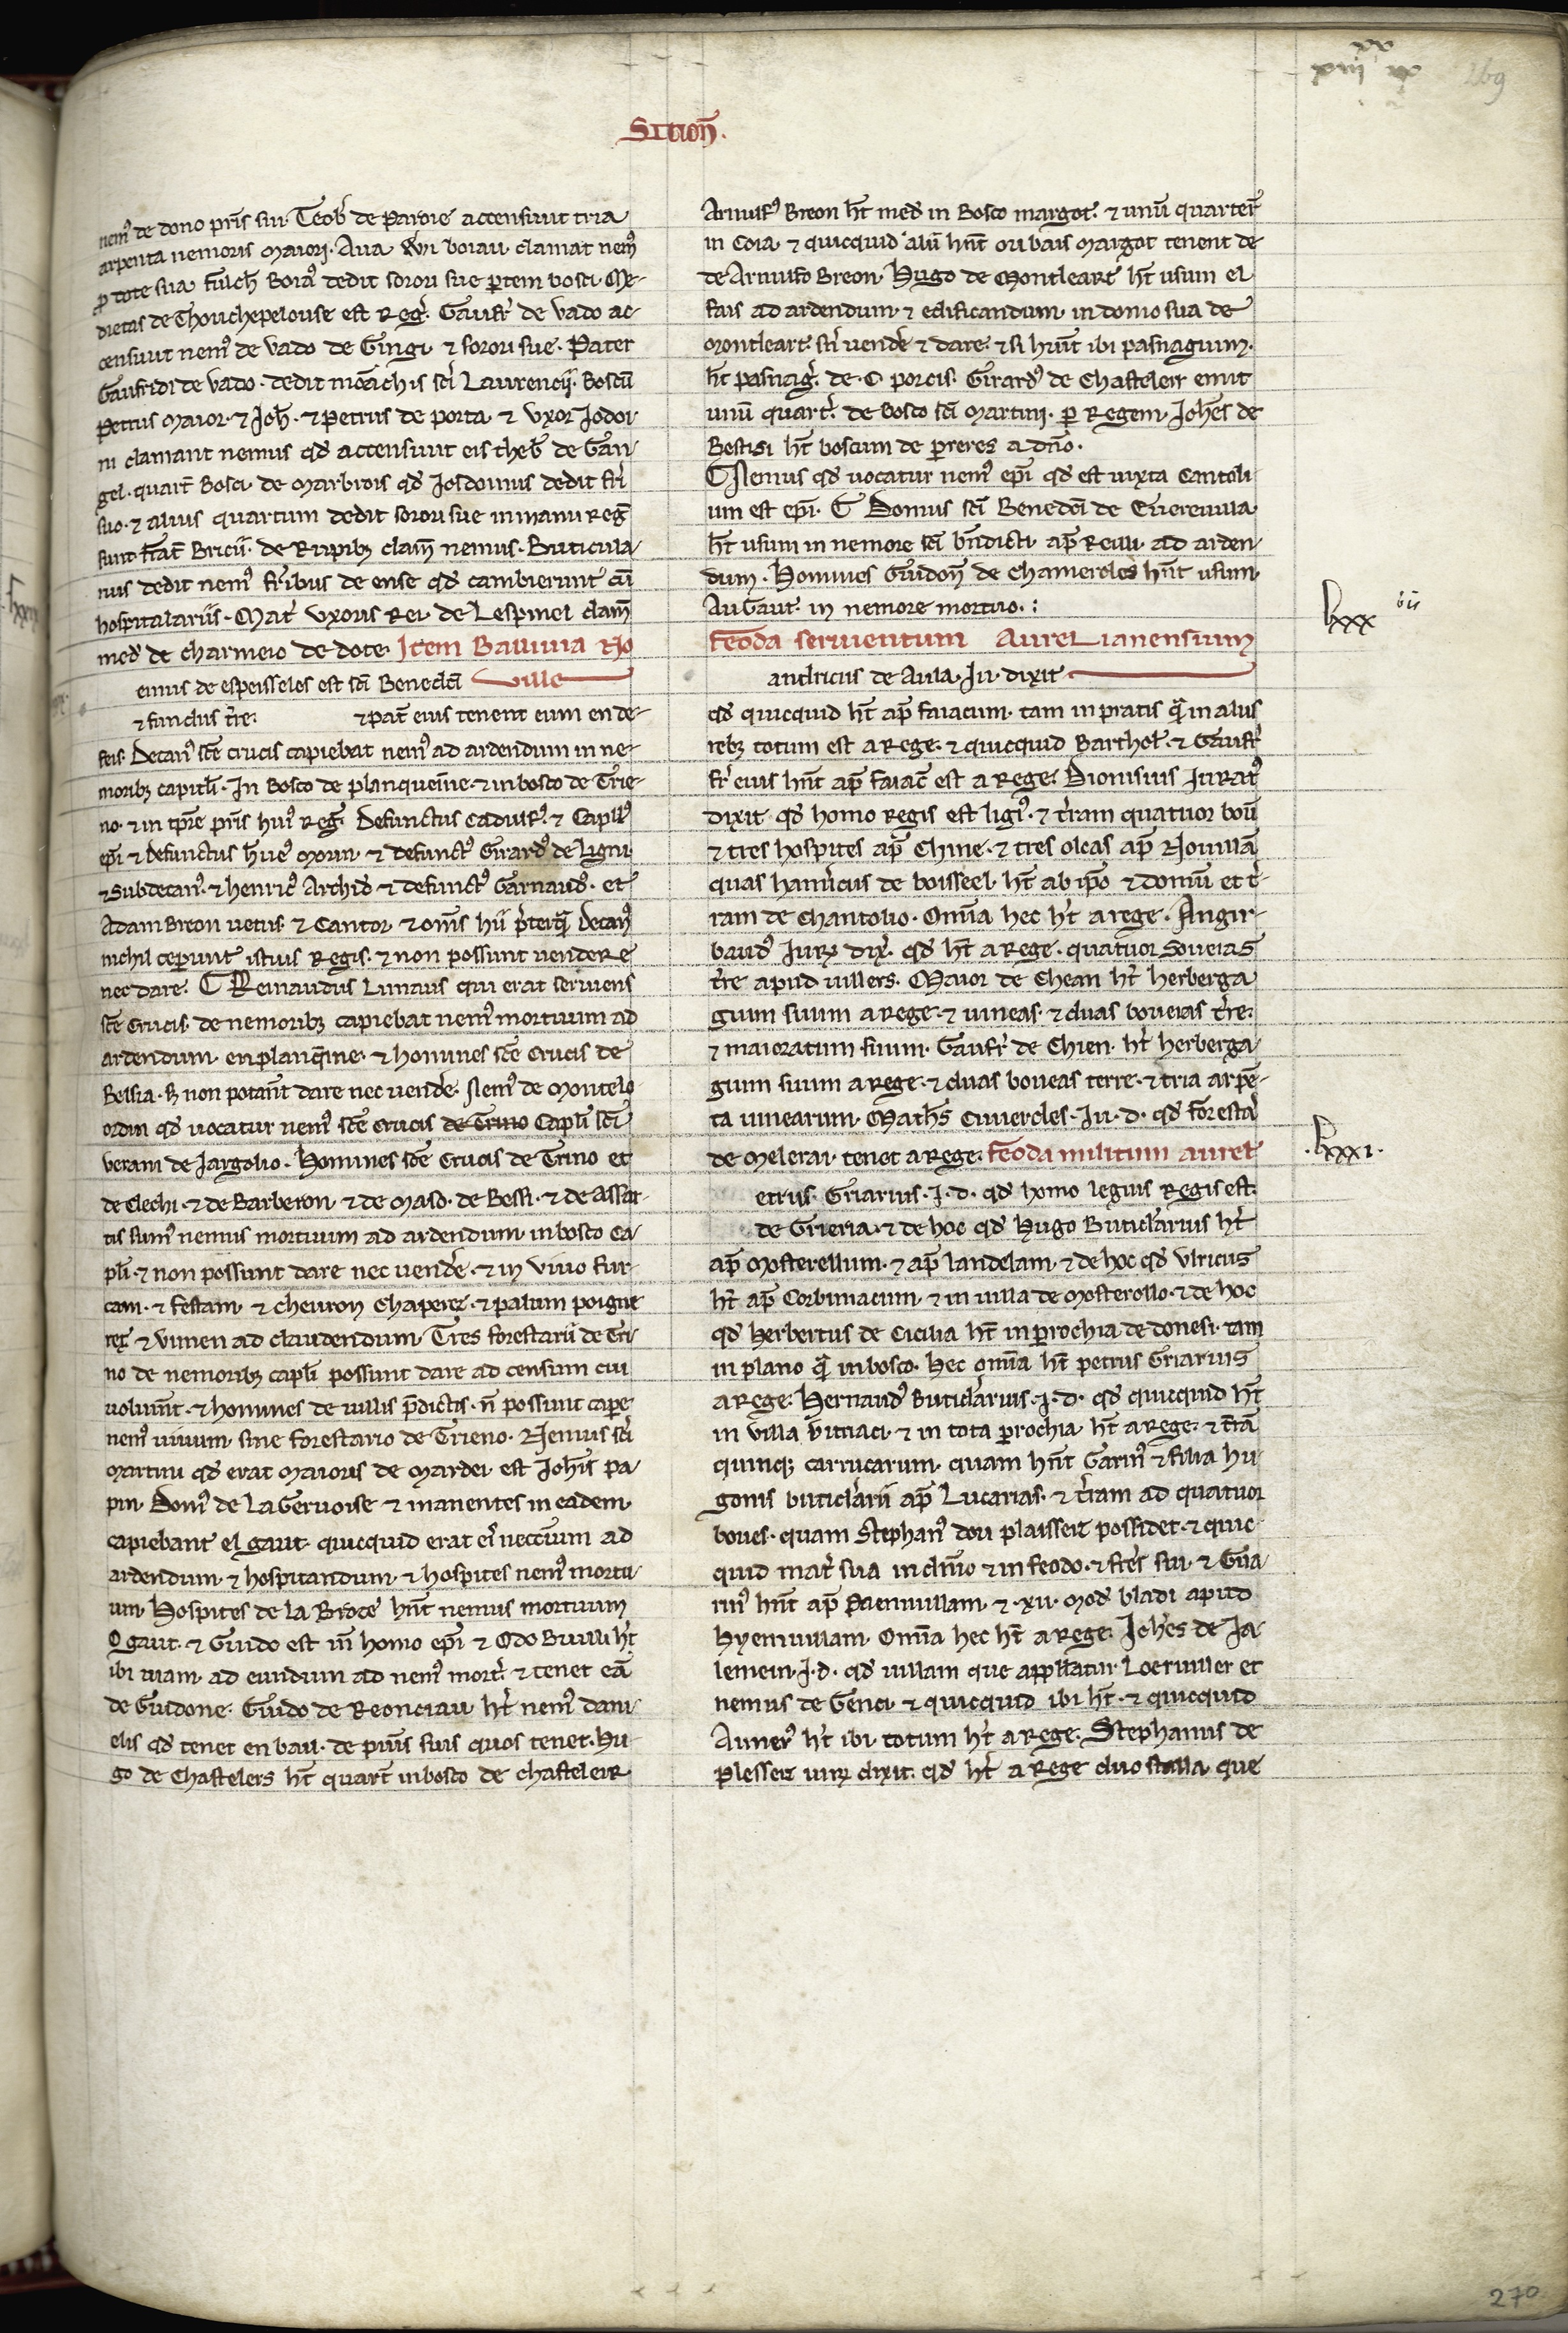 269
Sition̄.
nem᷒ de dono pr̄is sui. Teob̄ de Parvie accensivit tria
arpenta nemoris maiori. Ava Wi boiau clamat nem᷒
ꝓ dote sua fulch̄ Boia᷒ dedit sorori sue ꝑtem bosci. Me-
dietas de Thouchepelouse est Reḡ. Gaufr̄ de vado ac-
censivit nem᷒ de vado de Gingi ⁊ sorori sue. Pater
Gaufridi de vado. dedit mōachis sc̄i Laurencii. Boscū
Petrus maior. ⁊ Joh̄. ⁊ Petrus de porta. ⁊ vxor Jodoi
ni clamant nemus qd̄ accensivit eis theb̄ de Gan-
gel. quart̄ Bosci de Marbrois qd̄ Josdoinus dedit fr̄i
suo. ⁊ alius quartum dedit sorori sue in manu Reḡ
sunt. frāt̄ Bricii. de Rupibꝫ clam̄ nemus. Buticula-
rius dedit nem᷒ fr̄ibus de ense qd̄ cambierunt cū
hospitalariis. Mat̄ vxoris Rei. de Lespinei clam̄
med̄ de charmeio de dote. Item Bauuia No
emus de espeisseles est sc̄i Benedc̄i ville
⁊ fundus t̄re. ⁊ pat̄ eius tenent eum en de-
feis. Decan᷒ sc̄e crucis capiebat nem᷒ ad ardendum in ne-
moribꝫ capitl̄i. In Bosco de planqueīne. ⁊ in bosco de Trie-
no. ⁊ in tp̄re pr̄is hui᷒ Reḡ. Defunctus Cadulf᷒. ⁊ Capll᷒
ep̄i ⁊ defunctus h̄ue᷒ morin ⁊ defunct᷒ Girard᷒ de Ligni
⁊ Subdecan᷒. ⁊ henric᷒ Archid̄ ⁊ defunct᷒ Garnaud᷒. et
Adam Breon vetus ⁊ Cantor. ⁊ om̄s hii p̄terq̄ Decan᷒
nichil ceperunt istius Regis. ⁊ non possunt vendere
nec dare. ₵ Reinaudus Lunaus qui erat serviens
sc̄e crucis de nemoribꝫ capiebat nem᷒ mortuum ad
ardendum. en planq̄ine. ⁊ homines sc̄e crucis de
Bessia. s̄ non potant̄ dare nec vend̄e. Nem᷒ de Montelo
ordin qd̄ vocatur nem᷒ sc̄e crucis de Trino Capl̄i sc̄i
verani de Jargolio. Homines sc̄e crucis de Trino et
de Clechi. ⁊ de Barberon. ⁊ de Maso. de Bessi. ⁊ de assar-
tis sum̄ nemus mortuum ad ardendum. in bosco ca-
pl̄i. ⁊ non possunt dare nec vend̄e. ⁊ in vivo fur-
cam. ⁊ festam. ⁊ chevron Chaperez. ⁊ palum poigne
rez ⁊ vimen ad claudendum. Tres forestarii de Tri-
no de nemoribꝫ capl̄i possunt dare ad censum cui
voluint̄. ⁊ homines de villis p̄dictis. n̄ possunt cape
nem᷒ vivum. sine forestario de Trieno. Nemus sc̄i
Martini qd̄ erat maioris de Mardei est Joh̄is pa-
pin. Dom᷒ de la Gervoise ⁊ manentes in eadem
capiebant el gaut. quicquid erat ei necc̄ium ad
ardendum. ⁊ hospitandum. ⁊ hospites nem᷒ mortu-
um. Hospites de la Broce hn̄t nemus mortuum
O gaut. ⁊ Guido est in̄ homo ep̄i ⁊ Odo Buuili h̄t
ibi viam. ad eundum ad nem᷒ mort̄. ⁊ tenet eā
de Guidone. Guido de Reonciau h̄t nem᷒ dani-
elis qd̄ tenet en bau. de pivis suis quos tenet. Hu-
go de Chastelers h̄t quart̄ in bosco de chasteleir
Arnulf᷒ Breon h̄t med̄ in Bosco margot. ⁊ unū quarter̄
in Coia ⁊ quicquid alii hn̄t ou bois Margot tenent de
de Arnulfo Breon. Hugo de Montleart h̄t usum el
fais ad ardendum. ⁊ edificandum in domo sua de
Montleart. sn̄ vend̄e ⁊ dare. ⁊ si hunt̄ ibi pasnagium.
h̄t pasnaḡ. de. C. porcis. Girard᷒ de Chasteleir emit
unū quart̄. de Bosco sc̄i Martini. ꝑ Regem. Joh̄es de
Bestisi h̄t boscum de preres a dn̄o.
₵ Nemus qd̄ vocatur nem᷒ ep̄i qd̄ est iuxta Cantoli-
um est ep̄i. ₵ Domus sc̄i Benedc̄i de Evrerevilla
h̄t usum in nemore sc̄i bn̄dicti. ap̄ Revii. ad arden-
dum. Homines Guidon̄ de Chameroles hn̄t usum
Au Gaut. in nemore mortuo.:
lxxx vii
Feoda servientum Aurelianensium
andricus de Aula. Ju. dixit
qd̄ quicquid h̄t ap̄ faiacum. tam in pratis q̄ in aliis
rebꝫ totum est a Rege. ⁊ quicquid Barthol̄. ⁊ Gaufr̄
fr̄ eius hn̄t ap̄ faiac̄ est a Rege. Dionisius Jurat᷒
dixit qd̄ homo Regis est ligi᷒. ⁊ t̄ram quatuor boū
⁊ tres hospites ap̄ Chine. ⁊ tres olcas ap̄ Novillā
quas hamicus de boisseel. h̄t ab ip̄o ⁊ domū et t̄-
ram de Chantolio. Omīa hec h̄t a rege. Angir-
baud᷒ Jurꝫ dix̄. qd̄ h̄t a Rege. quatuor Boveias
t̄re apud villers. Maior de Chean h̄t herberga
gium suum a Rege. ⁊ vineas. ⁊ duas boveias t̄re.
⁊ maioratum suum. Gaufr̄ de Chien. h̄t herberga-
gium suum a Rege. ⁊ duas boveas terre. ⁊ tria arpē-
ta vinearum. Math̄s Civercles. Ju. d. qd̄ forestā
de Melerai. tenet a Rege. Feoda militum aurel
.lxxxi.
etrus Griarius. J. d. qd̄ homo legius Regis est.
de Grieria. ⁊ de hoc qd̄ Hugo Buticlarius h̄t
ap̄ Mosterellum. ⁊ ap̄ landelam. ⁊ de hoc qd̄ Ulricus
h̄t ap̄ Corbunacum. ⁊ in villa de Mosterollo. ⁊ de hoc
qd̄ herbertus de Cicilia h̄t in ꝑrochia de donesi. tam
in plano q̄ in bosco. hec omīa h̄t petrus Griarius
a Rege. Hernaud᷒ Buticlarius. J. d. qd̄ quicquid h̄t
in villa vitriaci. ⁊ in tota ꝑrochia. h̄t a Rege. ⁊ t̄rā
quinqꝫ carrucarum. quam hn̄t Garin᷒ ⁊ filia hu-
gonis buticlarii ap̄ Lucarias. ⁊ t̄ram ad quatuor
boues. quam Stephan᷒ dou plaisseit possidet. ⁊ quic-
quid mat̄ sua in dn̄io ⁊ in feodo. ⁊ fr̄es sui. ⁊ Gua-
rin᷒ hn̄t ap̄ Daenvillam. ⁊. xii. mod̄ bladi apud
hyenvillam. Omīa hec h̄t a Rege. Joh̄es de Ja-
lemein. J. d. qd̄ villam que app̄llatur Loerviller et
nemus de Genci. ⁊ quicquid ibi h̄t. ⁊ quicquid
Aumer᷒ h̄t ibi. totum h̄t a Rege. Stephanus de
Plesseit iurꝫ dixit. qd̄ h̄t a Rege duo stalla que
270